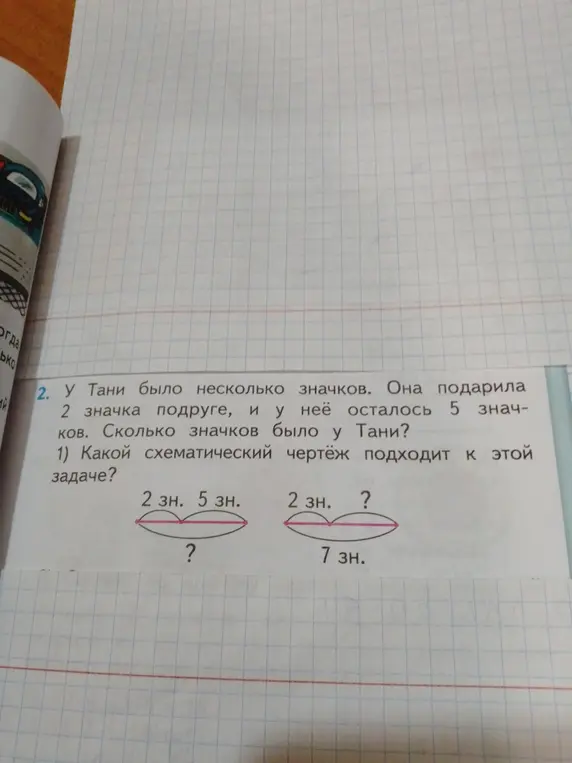 2. У Тани было несколько значков. Она подарила
2 значка подруге, и у неё осталось 5 знач-
ков. Сколько значков было у Тани?
1) Какой схематический чертёж подходит к этой
задаче?
2 зн. 5 зн. 2 зн. ?
? 7 зн.